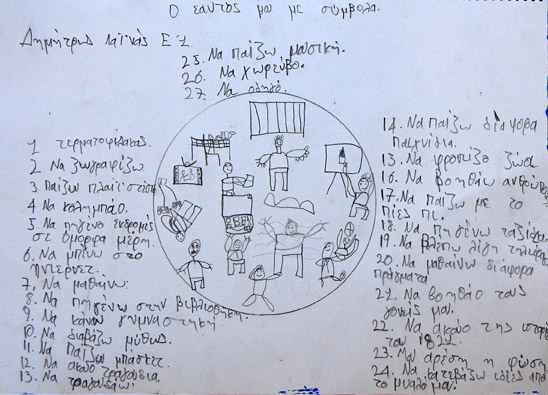 Ο εαυτός μου με σύμβολα.
Δημήτρης Ε'1
25. Να παίζω μουσική.
26. Να χωρεύω.
27. Να
1 τερματοφύλακας.
2 Να ζωγραφίζω
3. Παίζω πλαίστεισον
4 Να κολημπάο.
5 Να πηγένο εκδρομές
σε όμορφα μέρη.
6. Να μπένω στο
ίντερνετ.
7. Να μαθαίνω.
8. Να πηγένω στην βιβλιοθήκη.
9. Να κάνω γυμναστηκή.
10. Να διαβάζω μύθους.
11. Να παίζω μπάσκετ.
12. Να ακούο τραγούδια.
13. Να τραγουδάω.
14. Να παίζω διάφορα
παιχνίδια.
15. Να φροντίζο ζώα
16. Να βοηθάω ανθρώπους
17. Να παίζω με το
18. Να πηγένω ταξίδια
19. Να βλέπω λίγη τηλεόραση
20. Να μαθαίνω διάφορα
πράγματα
21. Να βοηθάο τους
γονείς μου.
22. Να ακούο της ιστορίες
του 1821.
23. Μου αρέση η φύση
24. Να κατεβάζω ιδέες από
το μυαλό μου.